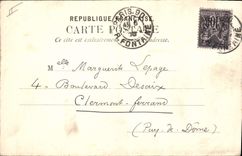 RÉPUBLIQUE FRANÇAISE
CARTE POSTALE
Ce côté est exclusivement réservé à l'adresse
R. FONTAINE
M elle Marguerite Lepage
4 - Boulevard Desaix
Clermont-ferrand
(Puy-de-Dôme)